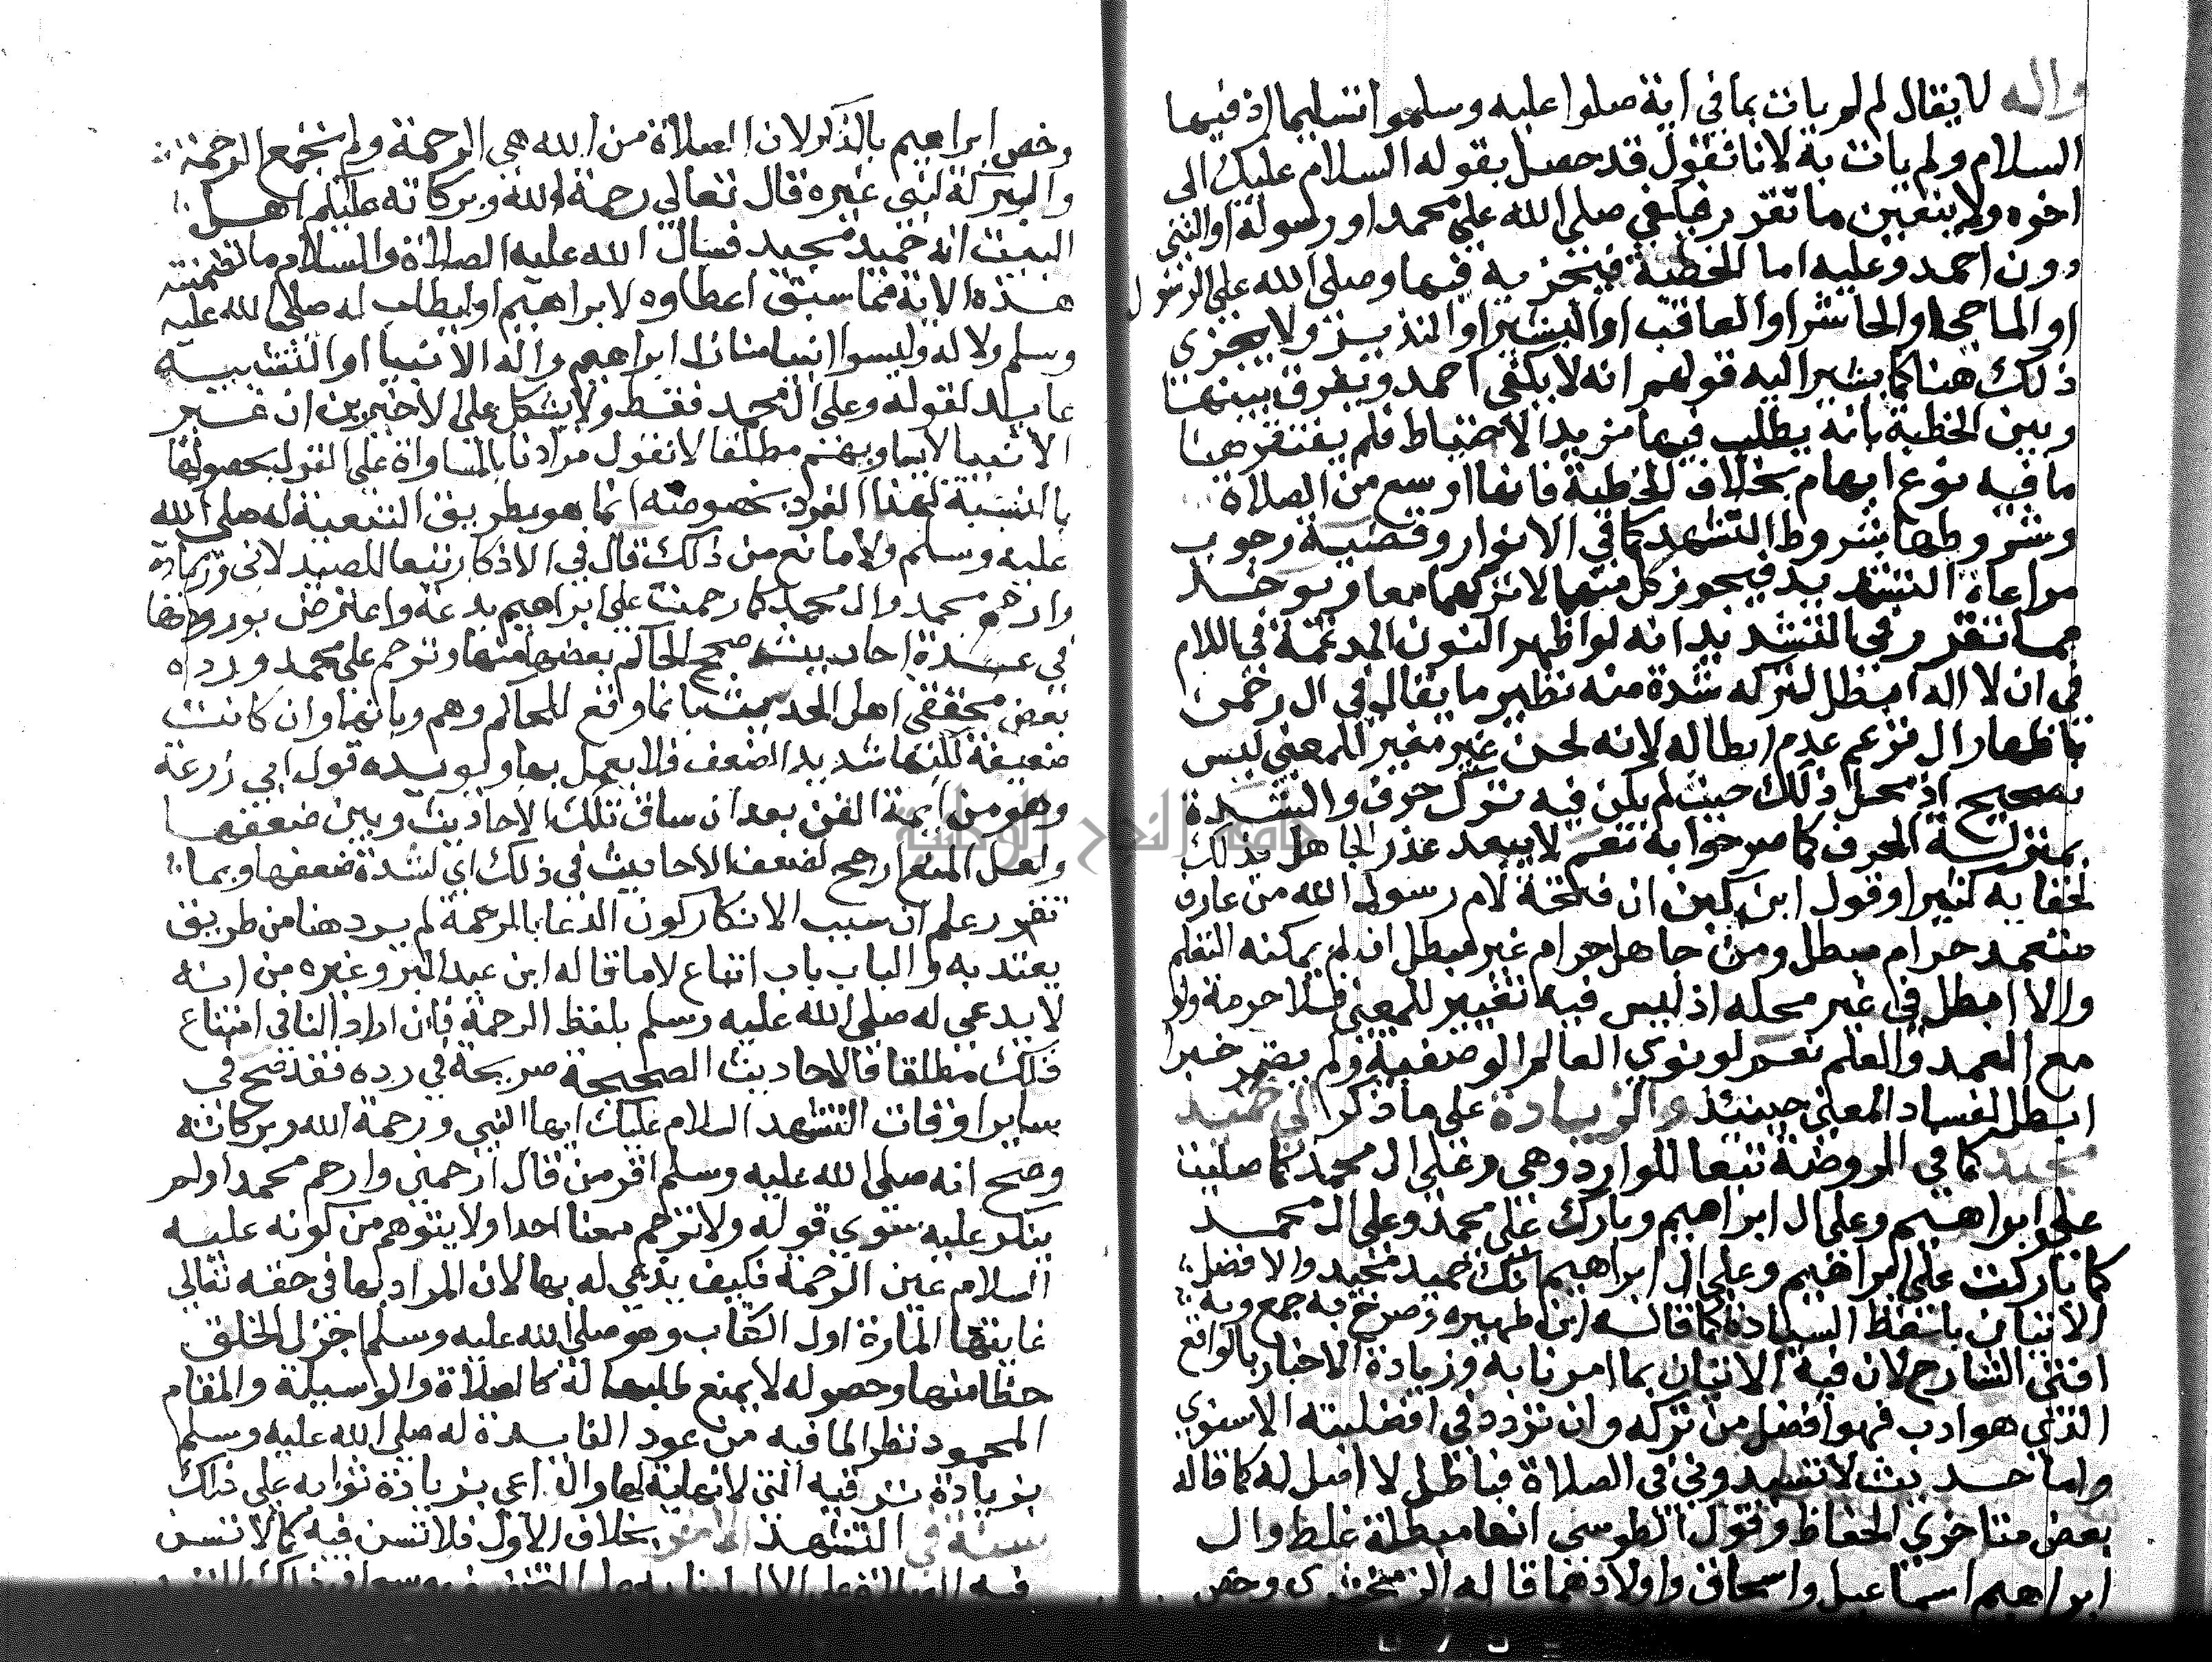 واله لا يقال لم لم يات بما في اية صلوا عليه وسلموا تسليما اذ فيها
السلام ولم يات به لانا نقول قد حصل بقوله السلام عليك الى
اخره ولا يتعين ما تقرر فيكفي صلى الله على محمد او رسوله او النبي
دون احمد وعليه اما الخطبة فيجزي فيها وصلى الله على الرسول
او الماحي او الحاشر او العاقب او البشير او النذير ولا يجزي
ذلك هنا كما يشير اليه قولهم انه لا يكفي احمد ويفرق بينها
وبين الخطبة بانه يطلب فيها مزيد الاحتياط فلم يغتفر هنا
ما فيه نوع ابهام بخلاف الخطبة فانها اوسع من الصلاة
وشروطها شروط التشهد كما في الانوار وقضية وجوب
مراعاة التشديد فيجوز كل منهما لا تركهما معا ويوخذ
مما تقرر في التشديد انه لو اظهر النون المدغمة في اللام
في ان لا اله ابطل لتركه شدة منه نظير ما يقال في ال رحمن
باظهار ال فزعم عدم ابطاله لانه لحن غير مغير للمعنى ليس
بصحيح اذ محل ذلك حيث لم يكن فيه ترك حرف والشدة
بمنزلة الحرف كما صرحوا به نعم لا يبعد عذر الجاهل في ذلك
لخفايه كثيرا وقول ابن كبن ان فتحة لام رسول الله من عارف
متعمد حرام مبطل ومن جاهل حرام غير مبطل ان لم يمكنه التعلم
والا ابطل في غير محله اذ ليس فيه تغيير للمعنى فلا حرمة ولو
مع العمد والعلم نعم لو نوى العالم الوصفية ولم يضمر خبرا
ابطل لفساد المعنى حينئذ والزيادة على ما ذكر الى حميد
مجيد كما في الروضة تبعا للوارد وهي وعلى ال محمد كما صليت
على ابراهيم وعلى ال ابراهيم وبارك على محمد وعلى ال محمد
كما باركت على ابراهيم وعلى ال ابراهيم انك حميد مجيد والافضل
الاتيان بلفظ السيادة كما قاله ابن ظهيره وصرح به جمع وبه
افتى الشارح لان فيه الاتيان بما امرنا به وزيادة الاخبار بالواقع
الذي هو ادب فهو افضل من تركه وان تردد في افضليته الاسنوي
واما حديث لا تسيدوني في الصلاة فباطل لا اصل له كما قاله
بعض متاخري الحفاظ وقول الطوسي انها مبطلة غلط وال
ابراهيم اسماعيل واسحاق واولادهما قاله الزمخشري وخص
وخص ابراهيم بالذكر لان الصلاة من الله هي الرحمة ولم تجمع الرحمة
والبركة لنبي غيره قال تعالى رحمة الله وبركاته عليكم اهل
البيت انه حميد مجيد فسال الله عليه الصلاة والسلام ما تضمنته
هذه الاية مما سبق اعطاوه لابراهيم او ليطلب له صلى الله عليه
وسلم ولاله وليسوا انبيا منازل ابراهيم واله الانبيا او التشبيه
عايد لقوله وعلى ال محمد فقط ولا يشكل على الاخيرين ان غير
الانبيا لا يساويهم مطلقا لانا نقول مرادنا بالمساواة على القول بحصولها
بالنسبة لهذا الفرد بخصوصه انما هو بطريق التبعية له صلى الله
عليه وسلم ولا مانع من ذلك قال في الاذكار تبعا للصيدلاني وزيادة
وارحم محمد وال محمد كما رحمت على ابراهيم بدعة واعترض بورودها
في عدة احاديث صحح الحاكم بعضها منها وترحم على محمد ورده
بعض محققي اهل الحديث بانما وقع للحاكم وهم وبانها وان كانت
ضعيفة لكنها شديد الضعف فلا يعمل بها ويويده قول ابي زرعة
وهو من ايمة الفن بعد ان ساق تلك الاحاديث وبين ضعفها
ولعل المنع ارجح لضعف الاحاديث في ذلك اي لشدة ضعفها وبما
تقرر علم ان سبب الانكار كون الدعا بالرحمة لم يرد هنا من طريق
يعتد به والباب باب اتباع لا ما قاله ابن عبد البر وغيره من انه
لا يدعى له صلى الله عليه وسلم بلفظ الرحمة فان اراد النافي امتناع
ذلك مطلقا فالاحاديث الصحيحة صريحة في رده فقد صح في
ساير اوقات التشهد السلام عليك ايها النبي ورحمة الله وبركاته
وصح انه صلى الله عليه وسلم اقر من قال ارحمني وارحم محمدا ولم
ينكر عليه سوى قوله ولا ترحم معنا احدا ولا يتوهم من كونه عليه
السلام عين الرحمة فكيف يدعى له بها لان المراد بها في حقه تعالى
غايتها المارة اول الكتاب وهو صلى الله عليه وسلم اجزل الخلق
حظا منها وحصوله لا يمنع طلبها له كالصلاة والوسيلة والمقام
المحمود نظرا لما فيه من عود الفايدة له صلى الله عليه وسلم
بزيادة ترقيه التي لا نهاية لها والداعي بزيادة ثوابه على ذلك
سنة في التشهد الاخير بخلاف الاول فلا تسن فيه كما لا تسن